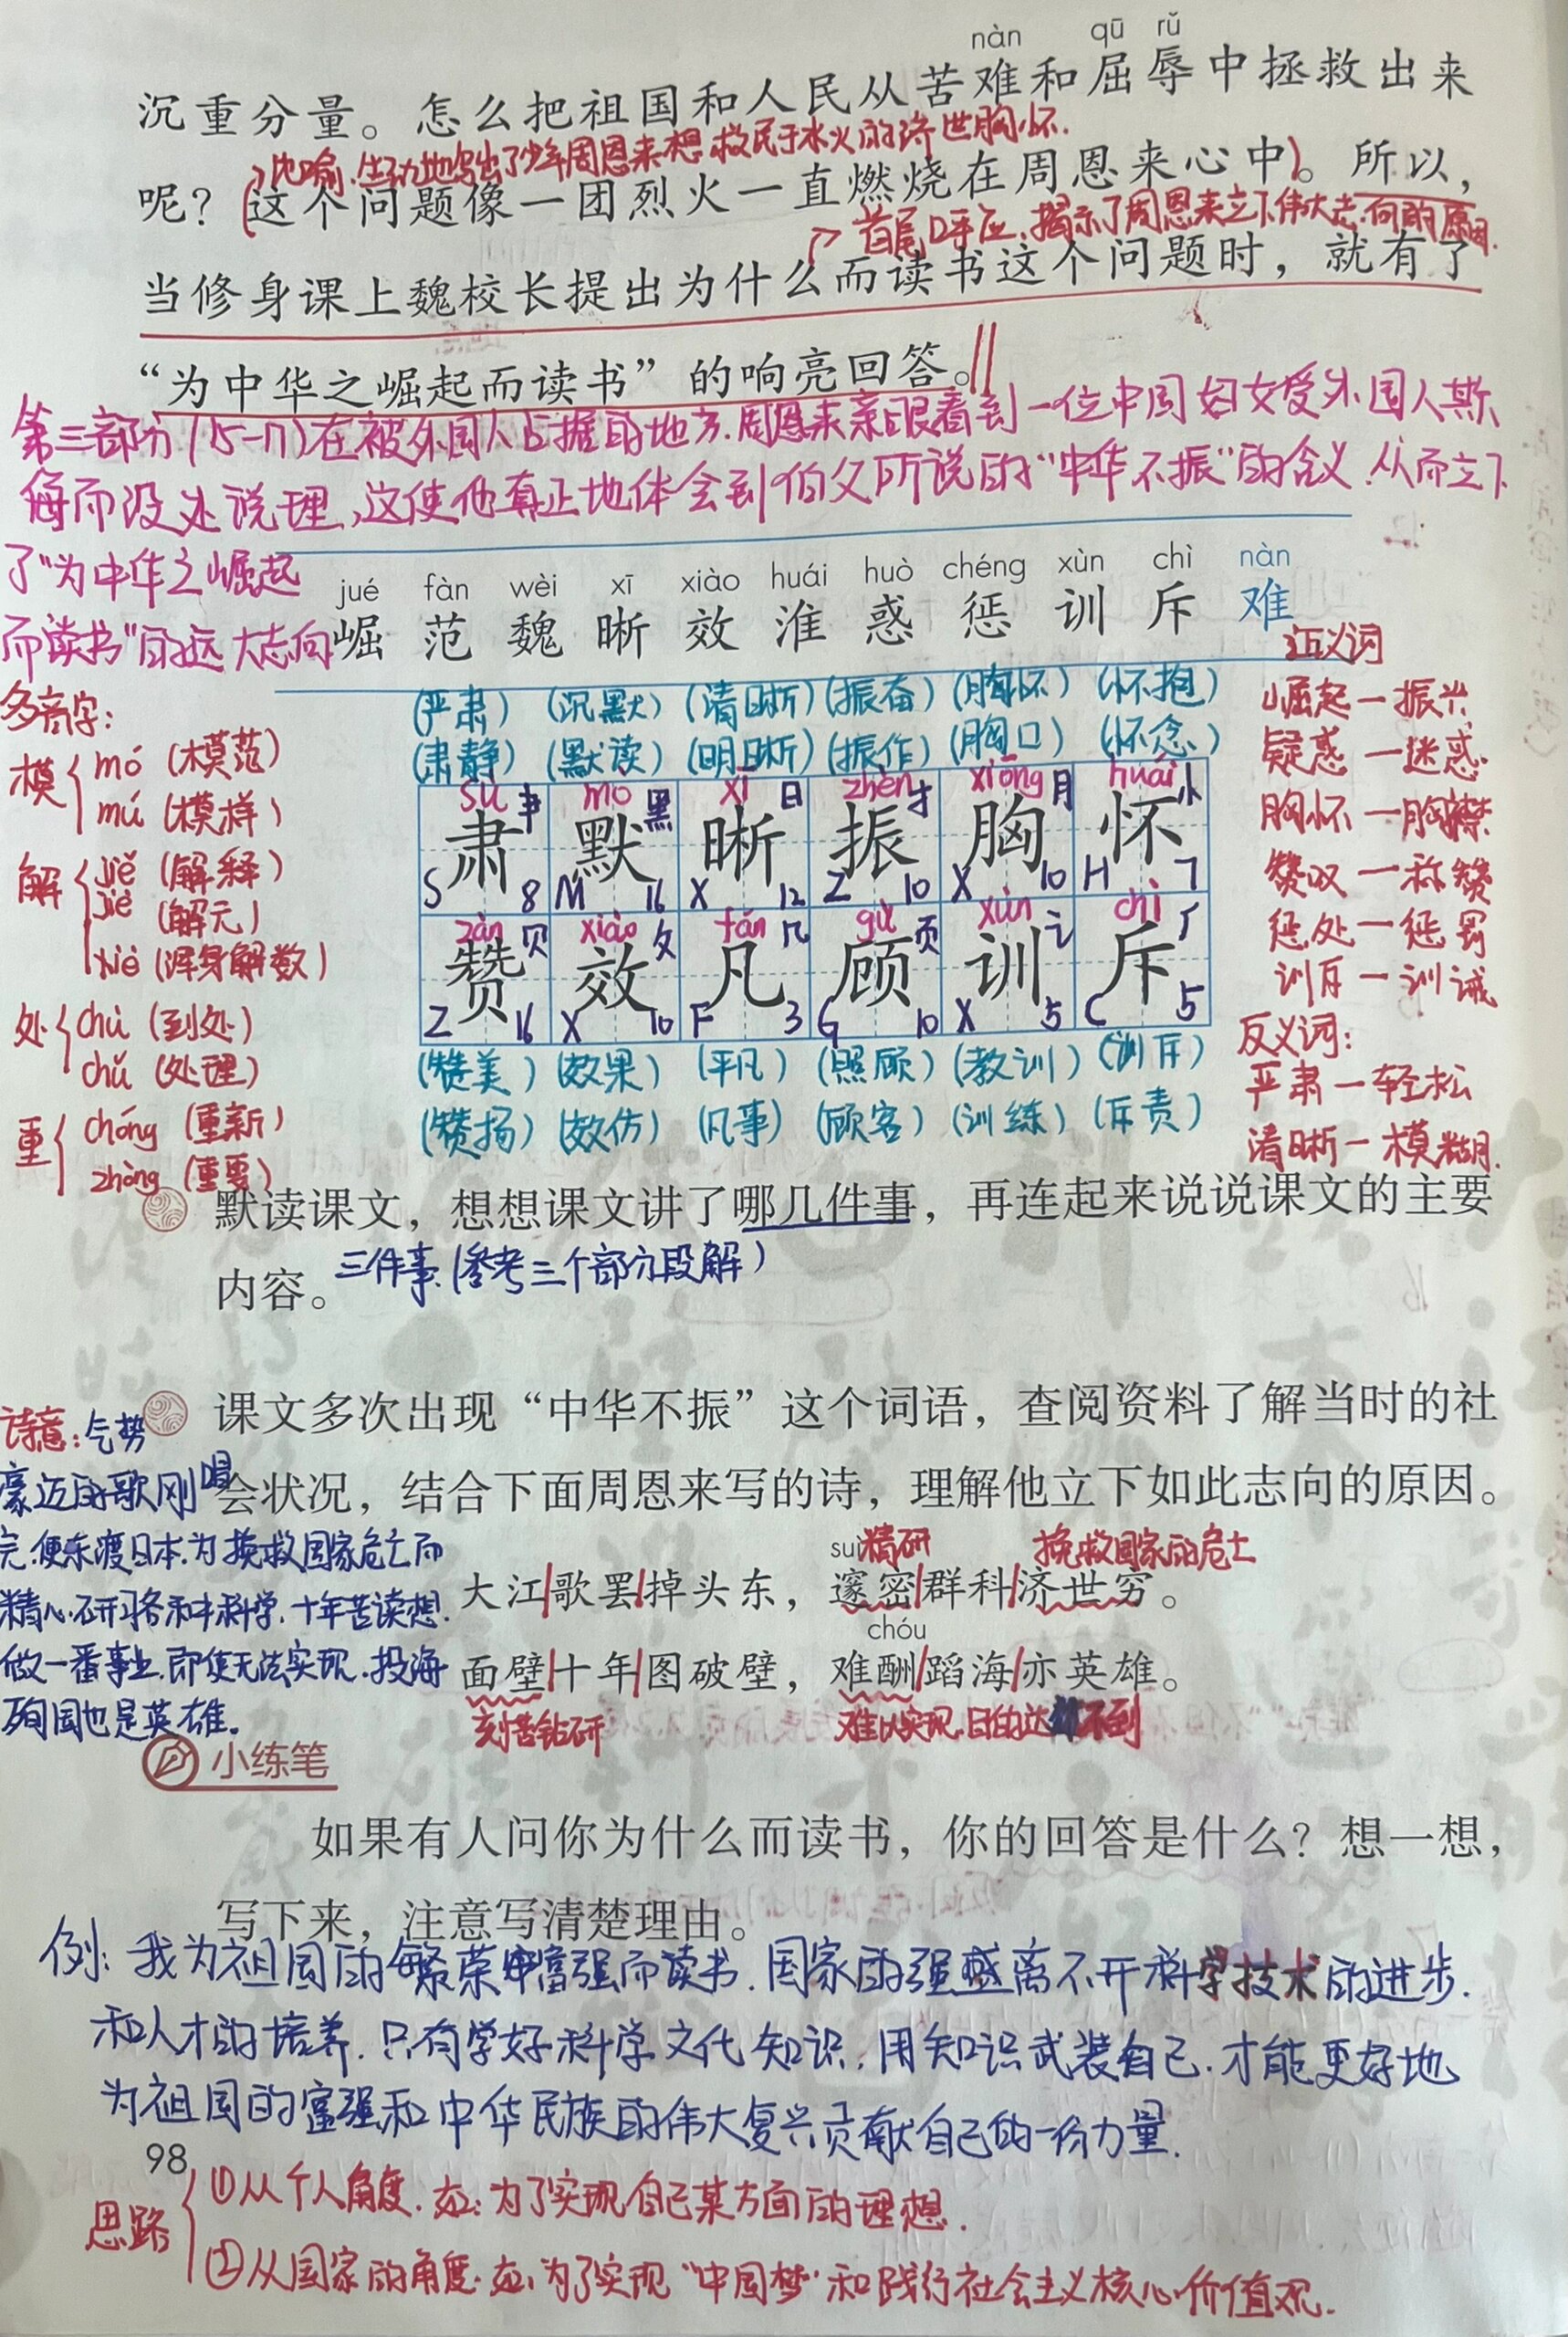 nàn qū rǔ
沉重分量。怎么把祖国和人民从苦难和屈辱中拯救出来
比喻.生动地写出了少年周恩来想救民于水火的济世胸怀.
呢？这个问题像一团烈火一直燃烧在周恩来心中。所以，
首尾呼应.揭示了周恩来立下伟大志向的原因.
当修身课上魏校长提出为什么而读书这个问题时，就有了
“为中华之崛起而读书”的响亮回答。
第三部分(15-17)在被外国人占据的地方.周恩来亲眼看到一位中国妇女受外国人欺
侮而没处说理,这使他真正地体会到伯父所说的“中华不振”的含义.从而立下
了“为中华之崛起
而读书”的远大志向
jué fàn wèi xī xiào huái huò chéng xùn chì nàn
崛 范 魏 晰 效 淮 惑 惩 训 斥 难
多音字:
模 mó (模范)
mú (模样)
解 jiě (解释)
jiè (解元)
xiè (浑身解数)
处 chù (到处)
chǔ (处理)
重 chóng (重新)
zhòng (重要)
(严肃) (沉默) (清晰) (振奋) (胸怀) (怀抱)
(肃静) (默读) (明晰) (振作) (胸口) (怀念)
sù 肀 mò 黑 xī 日 zhèn 扌 xiōng 月 huái 忄
肃 默 晰 振 胸 怀
S 8 M 16 X 12 Z 10 X 10 H 7
zàn 贝 xiào 攵 fán 几 gù 页 xùn 讠 chì 斤
赞 效 凡 顾 训 斥
Z 16 X 10 F 3 G 10 X 5 C 5
(赞美) (效果) (平凡) (照顾) (教训) (训斥)
(赞扬) (效仿) (凡事) (顾客) (训练) (斥责)
近义词
崛起一振兴
疑惑一迷惑
胸怀一胸襟
赞叹一称赞
惩处一惩罚
训斥一训诫
反义词:
严肃一轻松
清晰一模糊.
默读课文，想想课文讲了哪几件事，再连起来说说课文的主要
内容。
三件事.(参考三个部分段解)
课文多次出现“中华不振”这个词语，查阅资料了解当时的社
会状况，结合下面周恩来写的诗，理解他立下如此志向的原因。
诗意:气势
豪迈的歌刚唱
完.便东渡日本.为挽救国家危亡而
精心研习各种科学.十年苦读想.
做一番事业.即使无法实现.投海
殉国也是英雄.
suì 精研 挽救国家的危亡
大江歌罢掉头东，邃密群科济世穷。
chóu
面壁十年图破壁，难酬蹈海亦英雄。
刻苦钻研 难以实现.目的达不到
小练笔
如果有人问你为什么而读书，你的回答是什么？想一想，
写下来，注意写清楚理由。
例:我为祖国的繁荣富强而读书.国家的强盛离不开科学技术的进步.
和人才的培养.只有学好科学文化知识.用知识武装自己.才能更好地
为祖国的富强和中华民族的伟大复兴贡献自己的一份力量.
98
思路 ①从个人角度.如:为了实现自己某方面的理想.
②从国家的角度.如:为了实现“中国梦”和践行社会主义核心价值观.